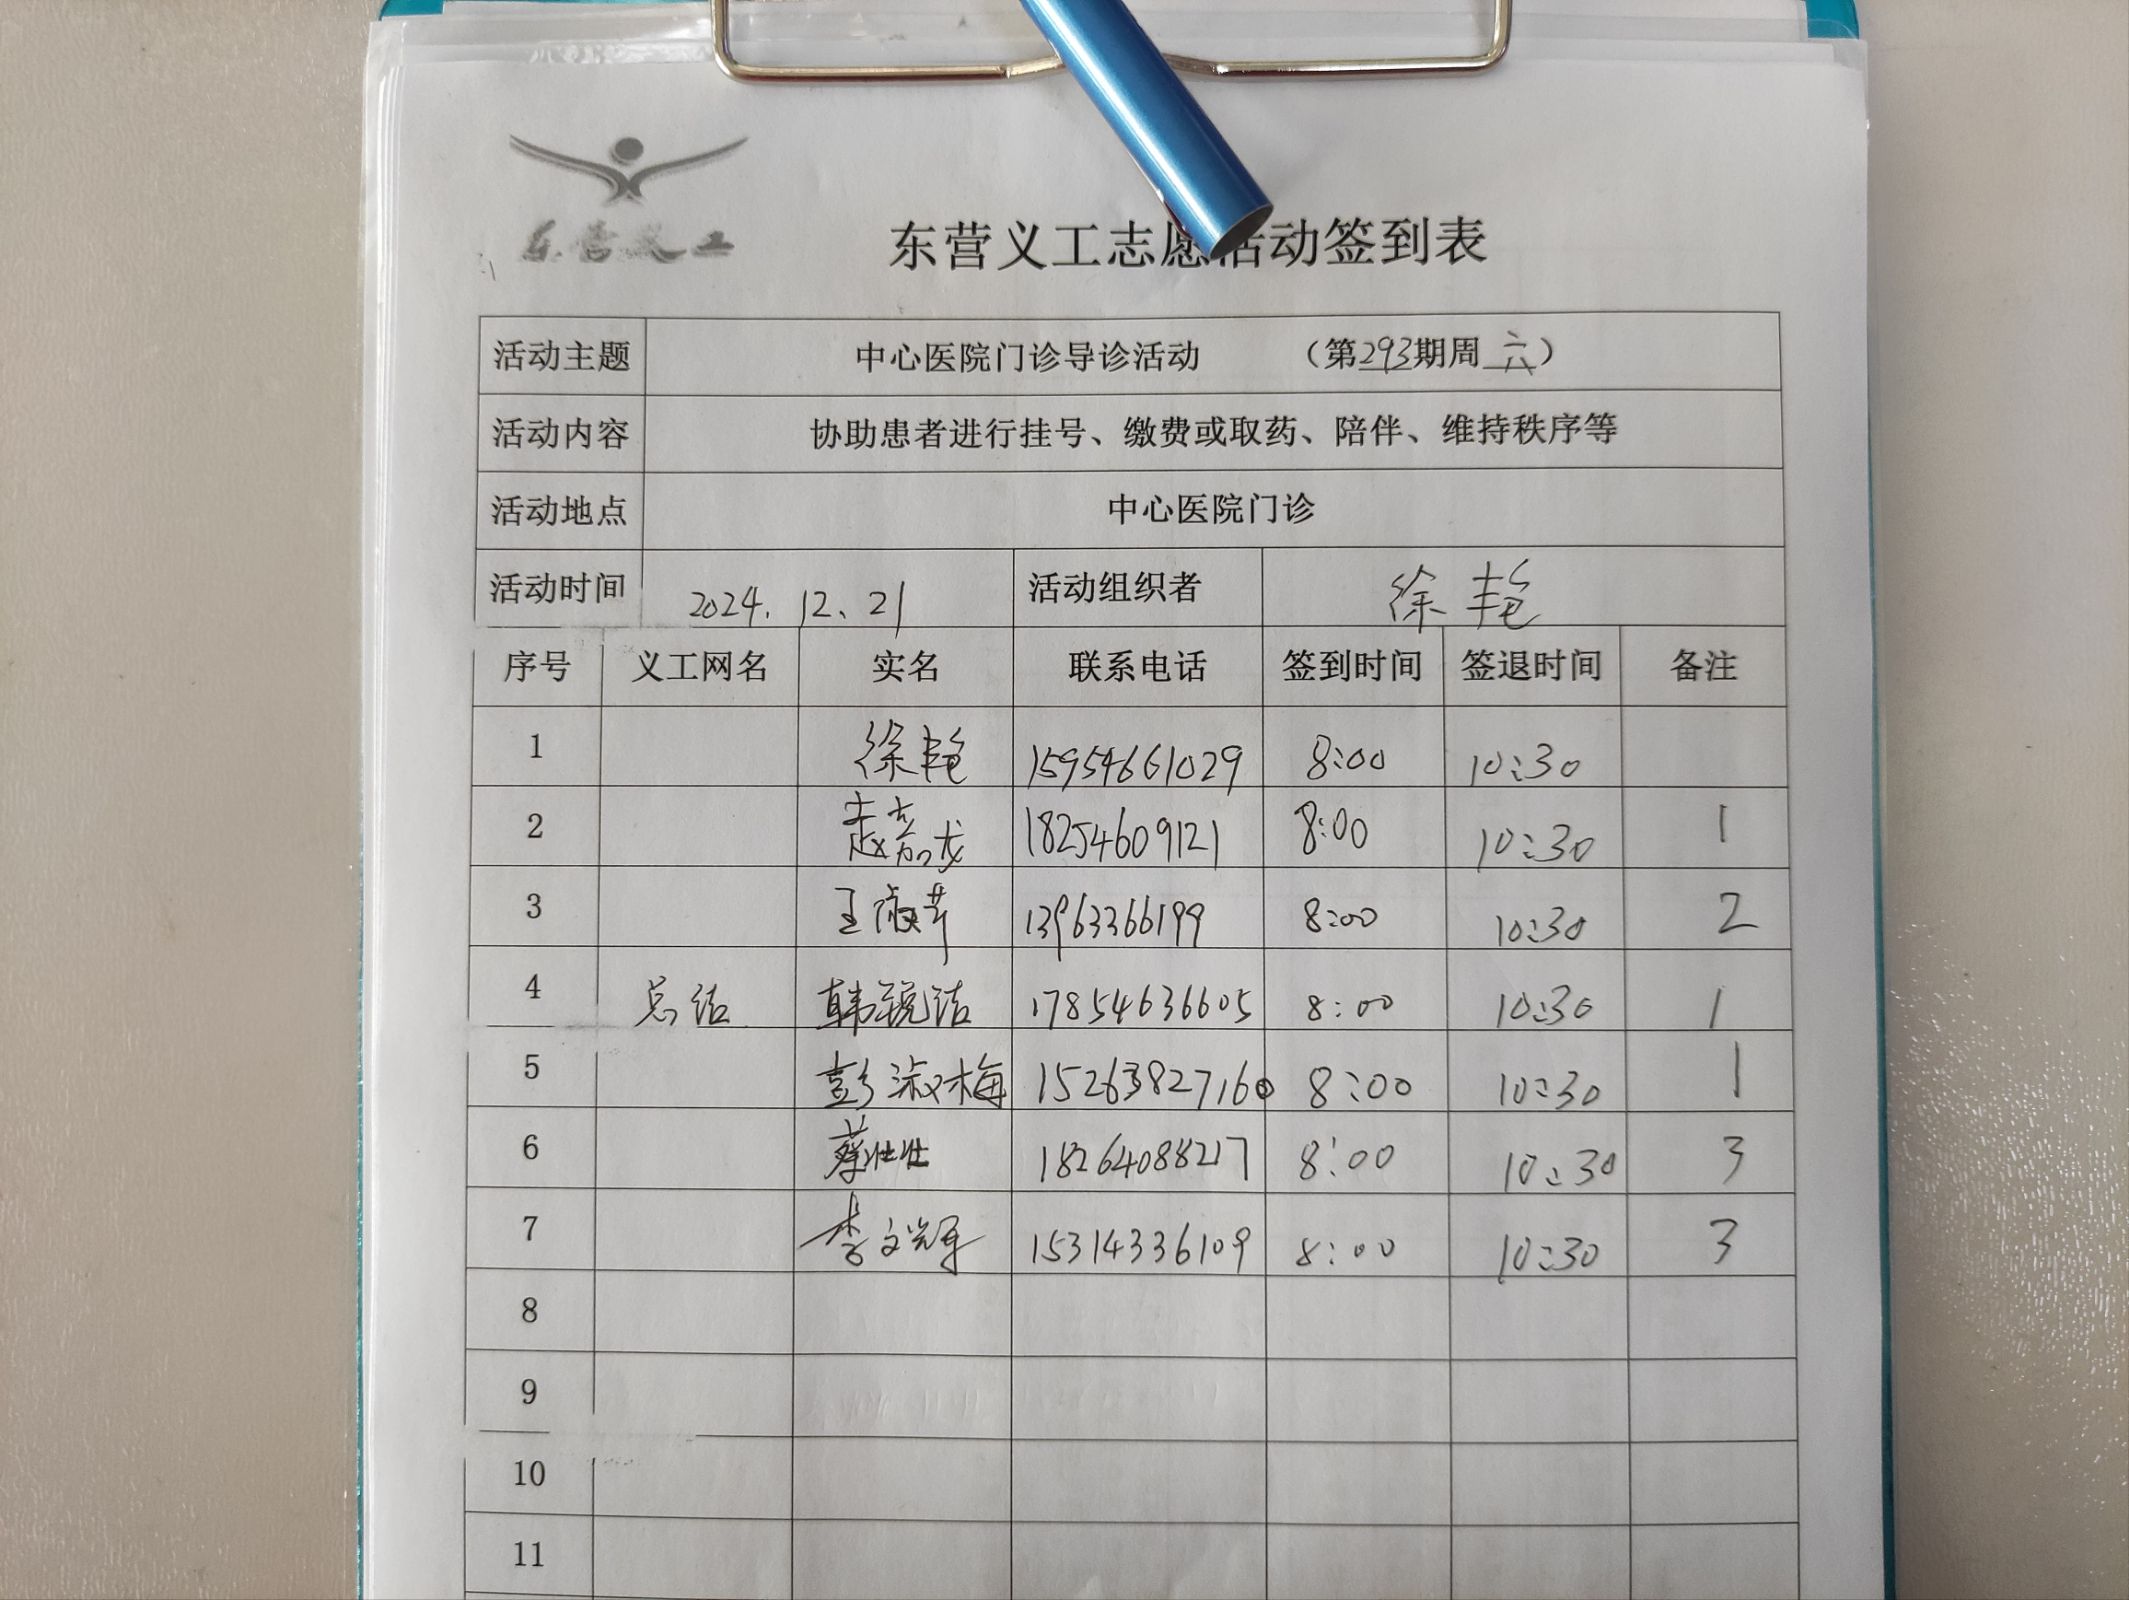 东营义工
东营义工志愿活动签到表
活动主题 中心医院门诊导诊活动 （第293期周六）
活动内容 协助患者进行挂号、缴费或取药、陪伴、维持秩序等
活动地点 中心医院门诊
活动时间 2024.12.21 活动组织者 徐艳
序号 义工网名 实名 联系电话 签到时间 签退时间 备注
1 徐艳 15954661029 8:00 10:30
2 赵嘉龙 18254609121 8:00 10:30 1
3 王淑芹 13963366199 8:00 10:30 2
4 韩锐洁 17854636605 8:00 10:30 1
5 彭淑梅 15263827160 8:00 10:30 1
6 蔡壮壮 18264088217 8:00 10:30 3
7 李文冠军 15314336109 8:00 10:30 3
8
9
10
11